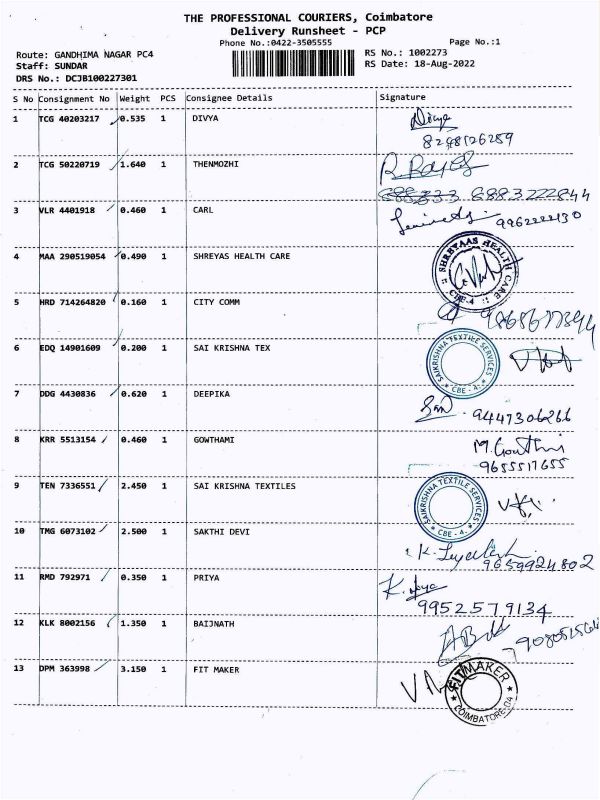 THE PROFESSIONAL COURIERS, Coimbatore
Delivery Runsheet - PCP
Phone No.:0422-3505555
Page No.:1
Route: GANDHIMA NAGAR PC4
RS No.: 1002273
Staff: SUNDAR
RS Date: 18-Aug-2022
DRS No.: DCJB100227301
S No Consignment No Weight PCS Consignee Details Signature
1 TCG 40203217 0.535 1 DIVYA Divya
8248126289
2 TCG 50220719 1.640 1 THENMOZHI
6883222844
3 VLR 4401918 0.460 1 CARL
9962222130
4 MAA 290519054 0.490 1 SHREYAS HEALTH CARE SHREYAAS HEALTH CARE CBE-4
5 HRD 714264820 0.160 1 CITY COMM
6 EDQ 14901609 0.200 1 SAI KRISHNA TEX SAIKRISHNA TEXTILE SERVICES CBE - 4.
7 DDG 4430836 0.620 1 DEEPIKA
9447306266
8 KRR 5513154 0.460 1 GOWTHAMI M. Gowthmi
9655517655
9 TEN 7336551 2.450 1 SAI KRISHNA TEXTILES SAIKRISHNA TEXTILE SERVICES CBE - 4.
10 TMG 6073102 2.500 1 SAKTHI DEVI
9659924802
11 RMD 792971 0.350 1 PRIYA
9952579134
12 KLK 8002156 1.350 1 BAIJNATH
13 DPM 363998 3.150 1 FIT MAKER FITMAKER COIMBATORE-04